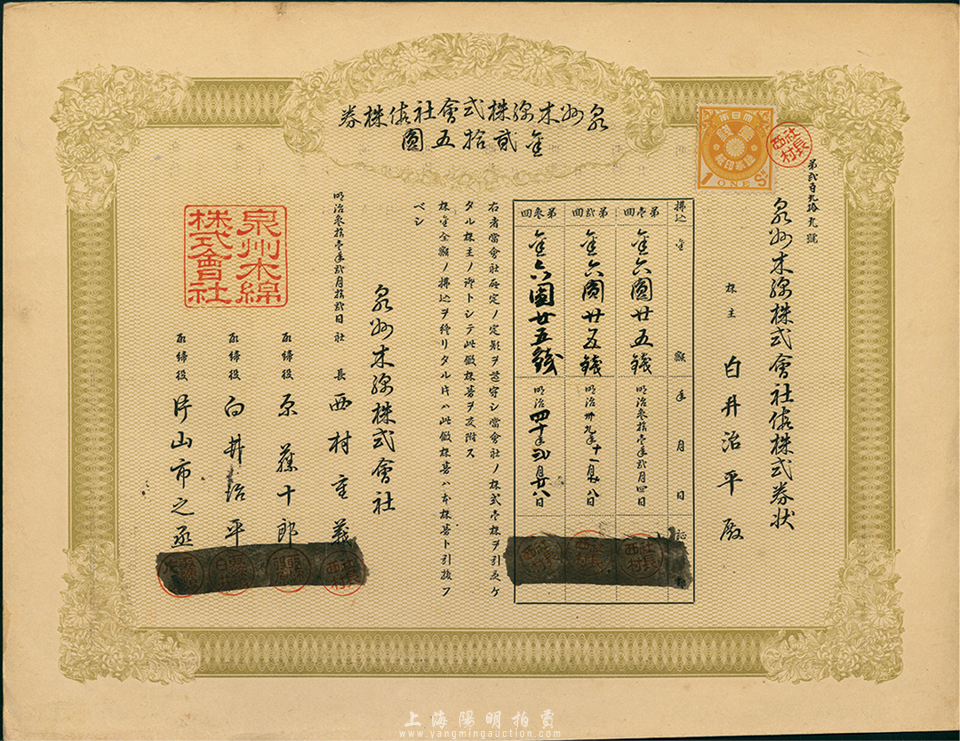 泉州木綿株式會社仮株券
金貳拾五圓
大日本帝國政府
證券印紙
1 ONE Sn
社長西村
第貳百九拾九號
泉州木綿株式會社仮株式券状
株主 白井治平 殿
拂込金額 年月日 証
第壱回 金六圓廿五錢 明治参拾壱年貳月四日
第貳回 金六圓廿五錢 明治卅九年十一月廿八日
第参回 金六圓廿五錢 明治四十年二月廿八日
右者當會社所定ノ定款ヲ遵守シ當會社ノ株式壱株ヲ引受ケ
タル株主ノ証トシテ此仮株券ヲ交附ス
株金全額ノ拂込ヲ終リタル片ハ此仮株券ハ本株券ト引換フ
ベシ
泉州木綿株式會社
明治参拾壱年貳月拾貳日
社長 西村重義
取締役 原藤十郎
取締役 白井治平
取締役 片山市之丞
泉州木綿株式會社
上海陽明拍賣
www.yangmingauction.com